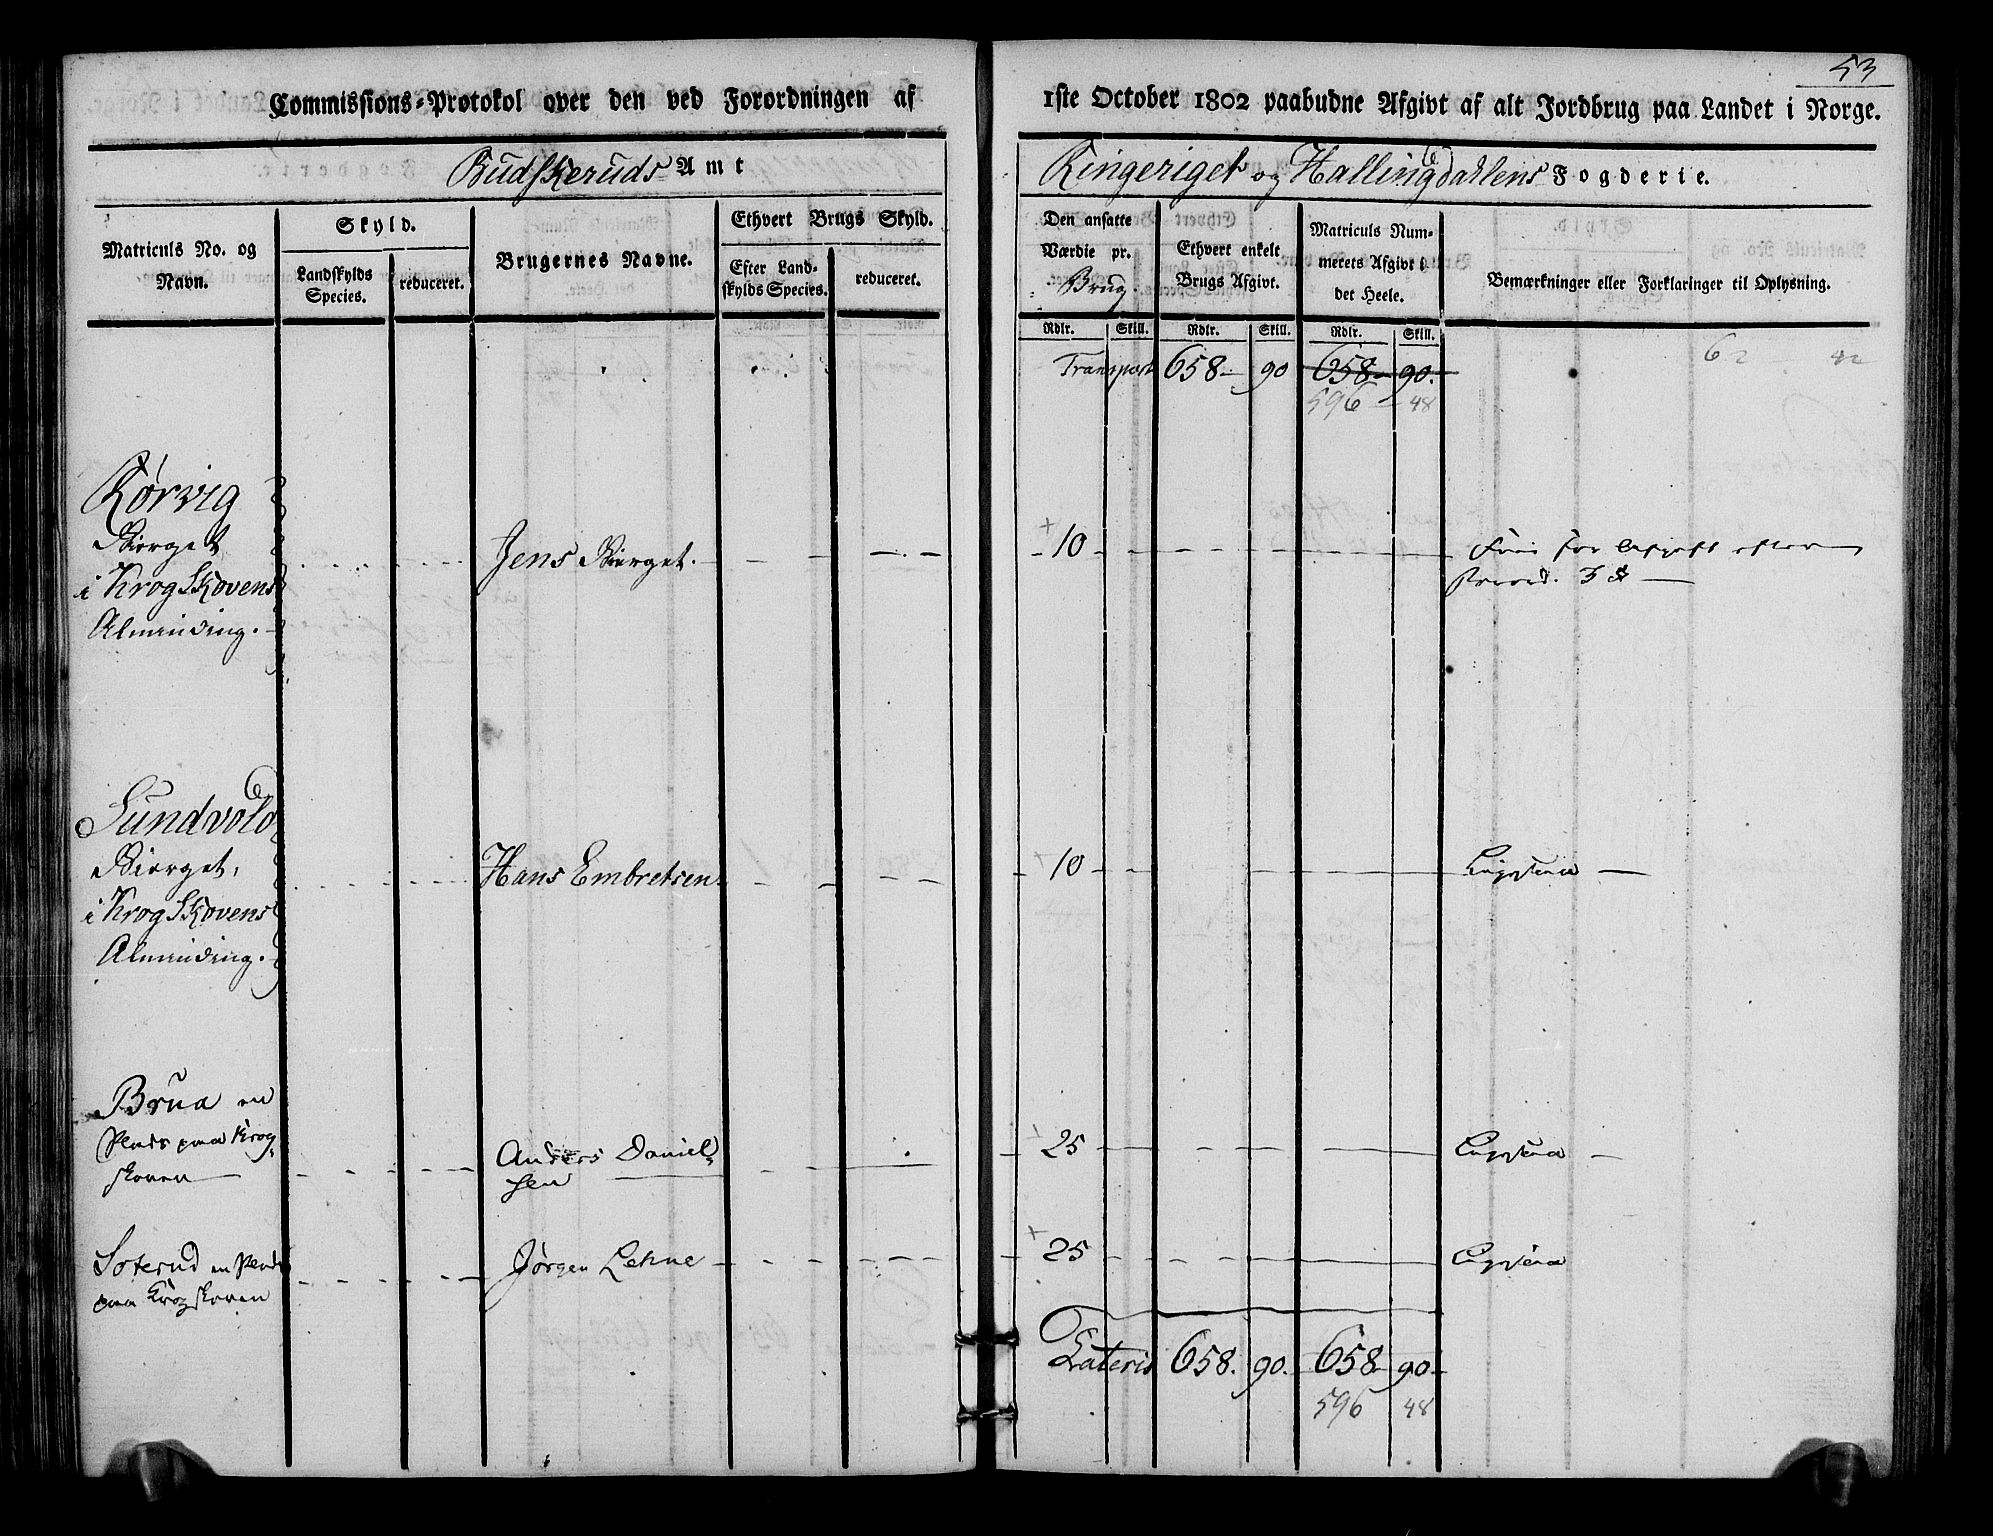 53
Commissions-Protokol over den ved Forordningen af 1ste October 1802 paabudne Afgivt af alt Jordbrug paa Landet i Norge.
Budskeruds Amt
Ringeriget og Hallingdahlens Fogderie.
Matriculs No. og Navn.
Skyld.
Landskylds Species.
reduceret.
Brugernes Navne.
Ethvert Brugs Skyld.
Efter Landskylds Species.
reduceret.
Den ansatte Værdie pr. Brug.
Ethvert enkelt Brugs Afgivt.
Matriculs Nummerets Afgivt i det Heele.
Bemærkninger eller Forklaringer til Oplysning.
Rdlr. Skill. Rdlr. Skill. Rdlr. Skill.
Transport 658 90 658 90.
596 48
62 42
Rørvig
Bierget
i Krog Skovens
Alminding.
Jens Bierget.
10
Frie for Afgivt efter
3 §
Sundvold
Bierget,
i Krog Skovens
Alminding.
Hans Embretsen
10
Ligesaa
Brua en
Plads paa Krog-
skoven
Anders Daniel-
sen
25
Ligesaa
Soterud en Plads
paa Krogskoven
Jørgen Lehne
25
Ligesaa
Lateris 658. 90. 658 90
596 48